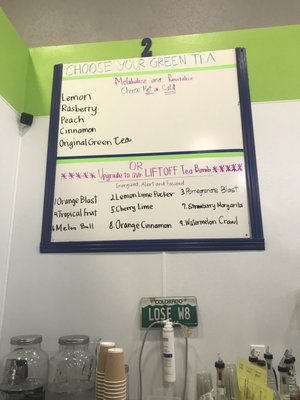 2
CHOOSE YOUR GREEN TEA
Metabolize and Revitalize
Choose Hot or Cold
Lemon
Rasberry
Peach
Cinnamon
Original Green Tea
OR
Upgrade to our LIFTOFF Tea Bomb
Energized, Alert and Focused
1 Orange Blast 2. Lemon Lime Pucker 3. Pomegranate Blast
4 Tropical Fruit 5. Cherry Lime 7. Strawberry Margarita
6. Melon Ball 8. Orange Cinnamon 9. Watermelon Crawl
COLORADO
LOSE W8